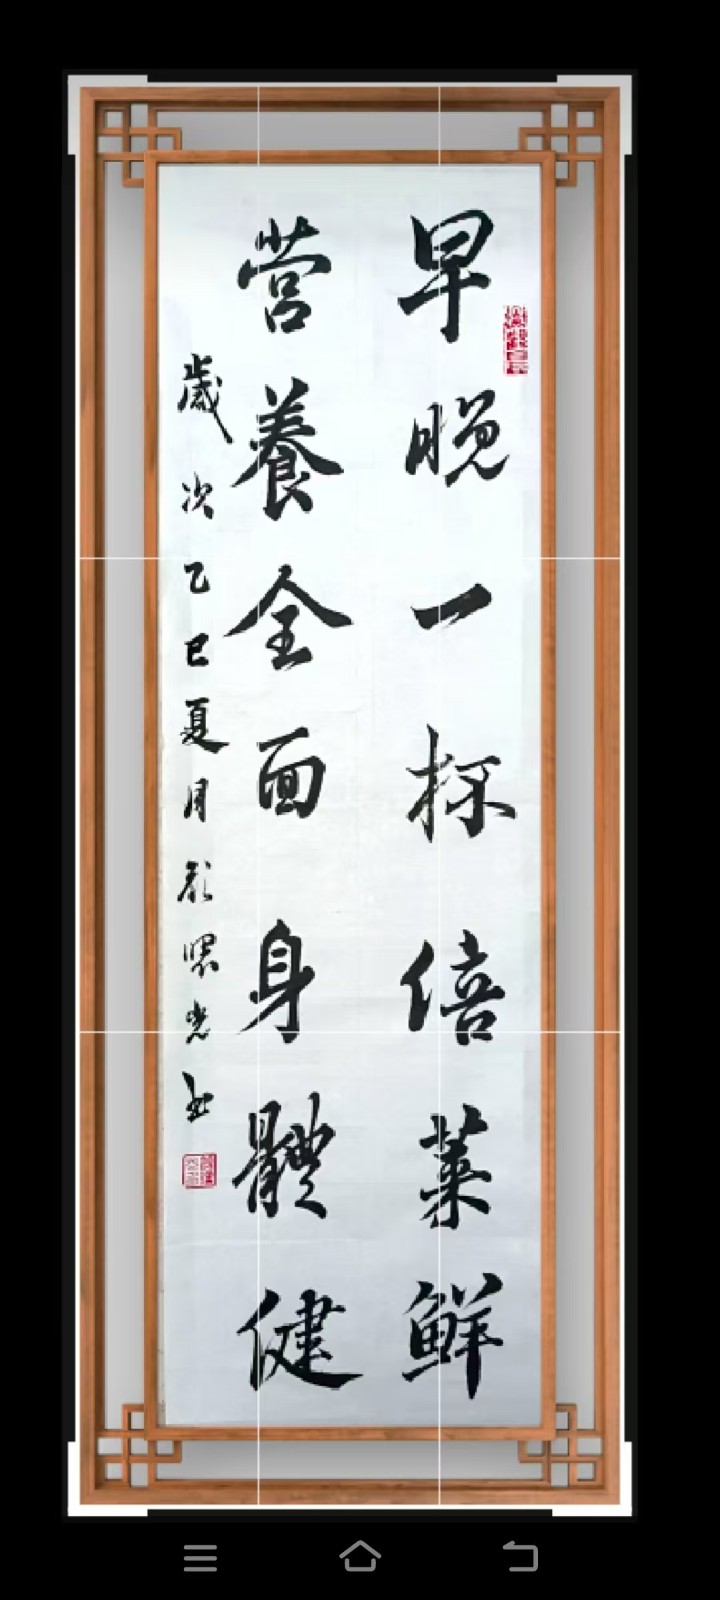 早晚一杯倍莱鮮
营養全面身體健
歲次乙巳夏月光书